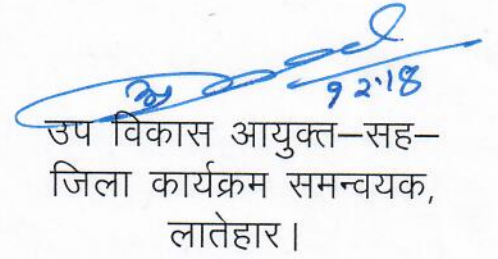 9 2.18
उप विकास आयुक्त–सह–
जिला कार्यक्रम समन्वयक,
लातेहार।